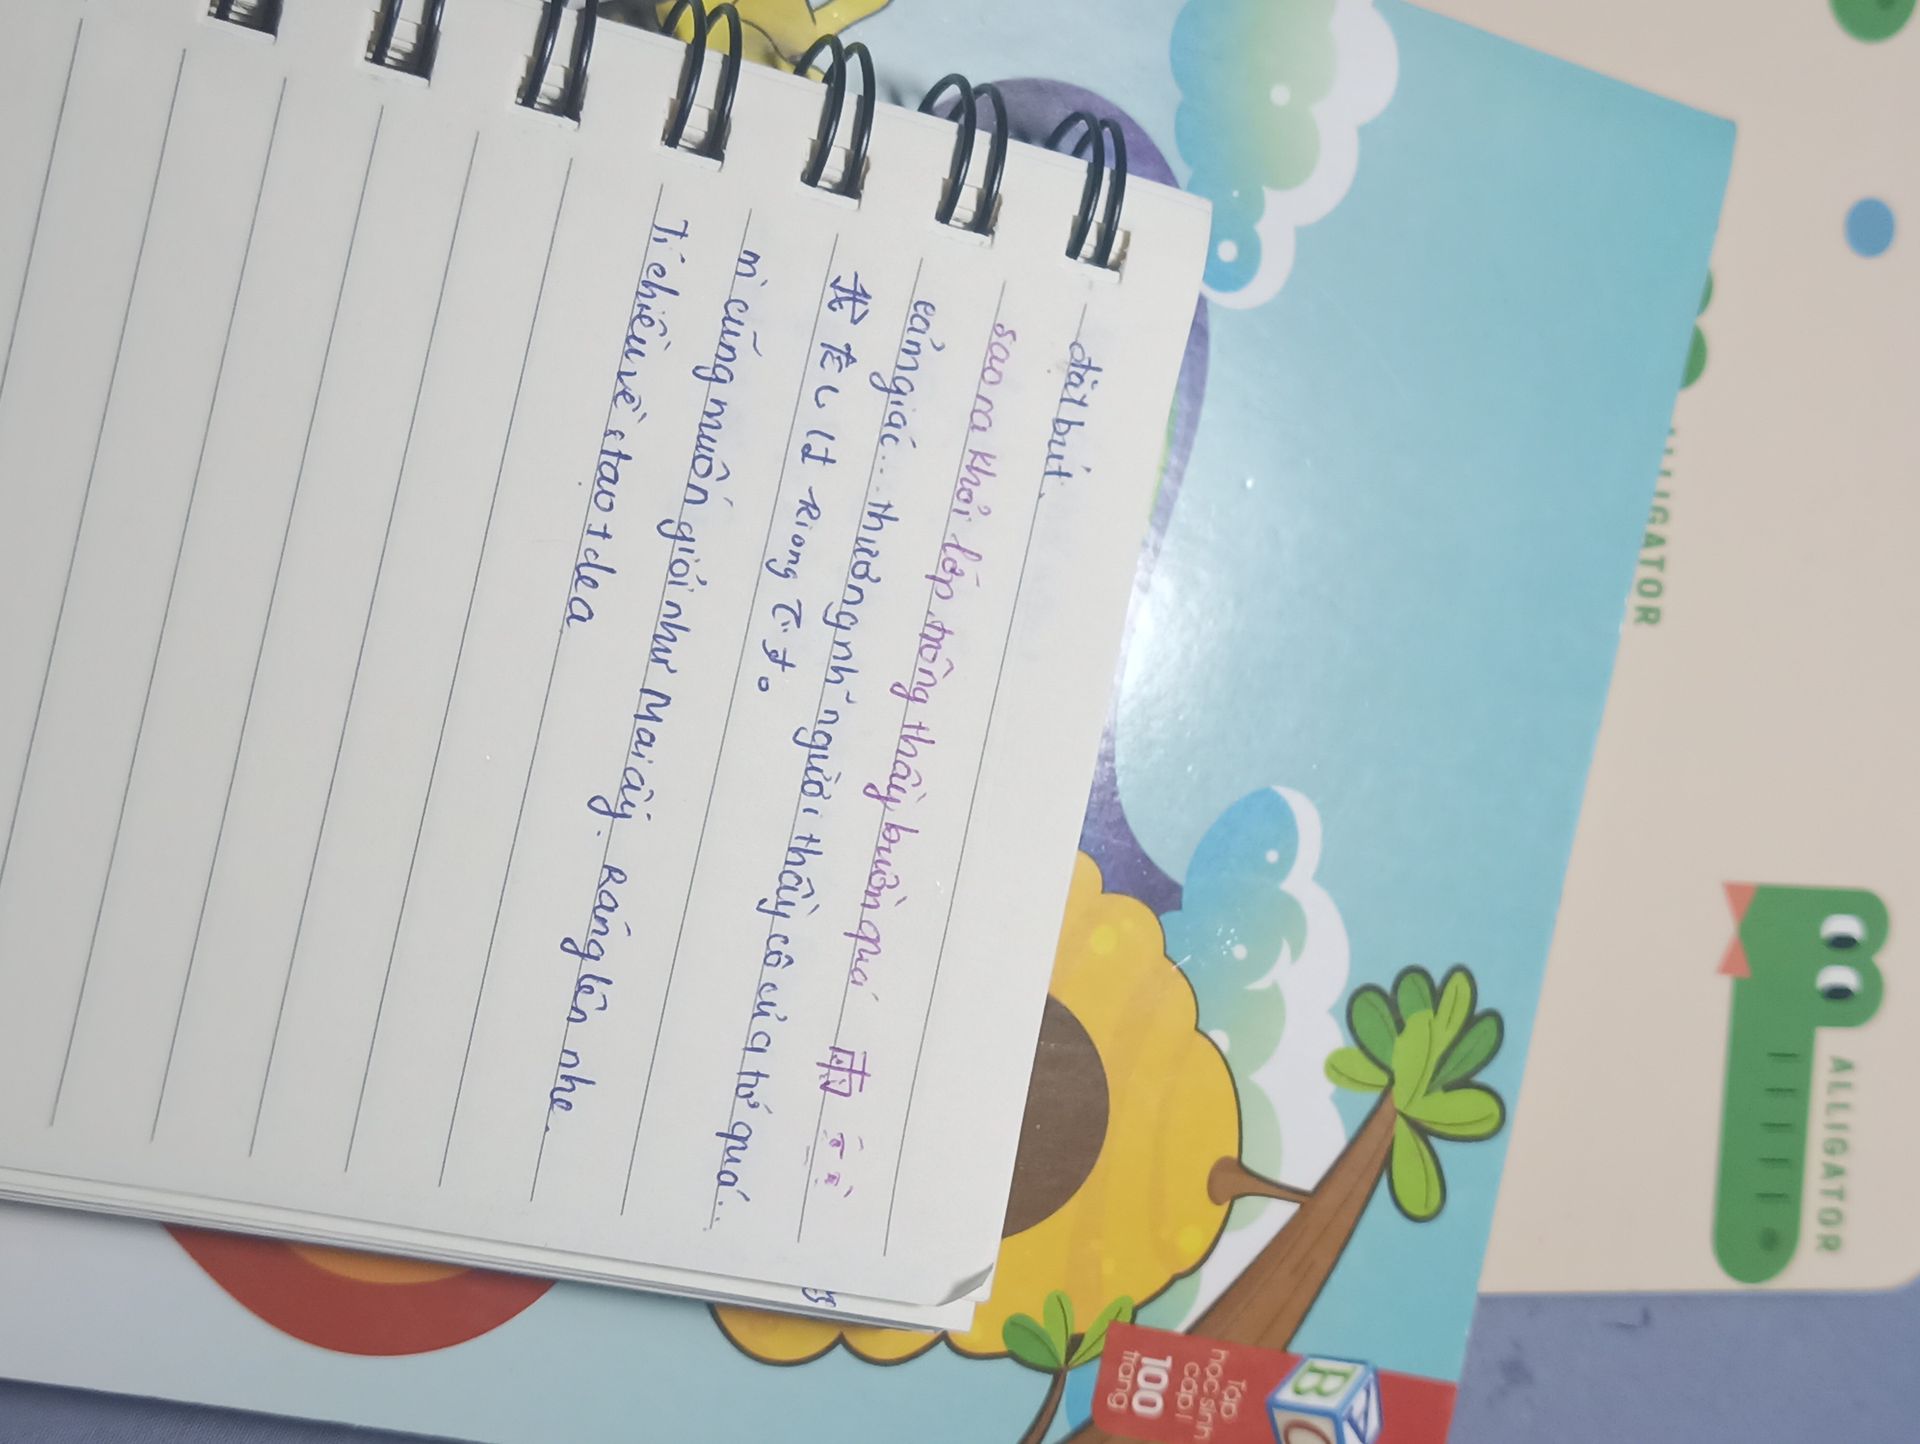 đặt bút.
sao ra khỏi lớp trông thầy buồn quá
cảm giác... thương nh~ người thầy cô của tớ quá...
我 在
m` cũng muốn giỏi như Mai ấy. Ráng lên nhe.
Tí chiều về, tao + dea
ALLIGATOR
ALLIGATOR
Tập
học sinh
cấp 1
100
trang
B
C